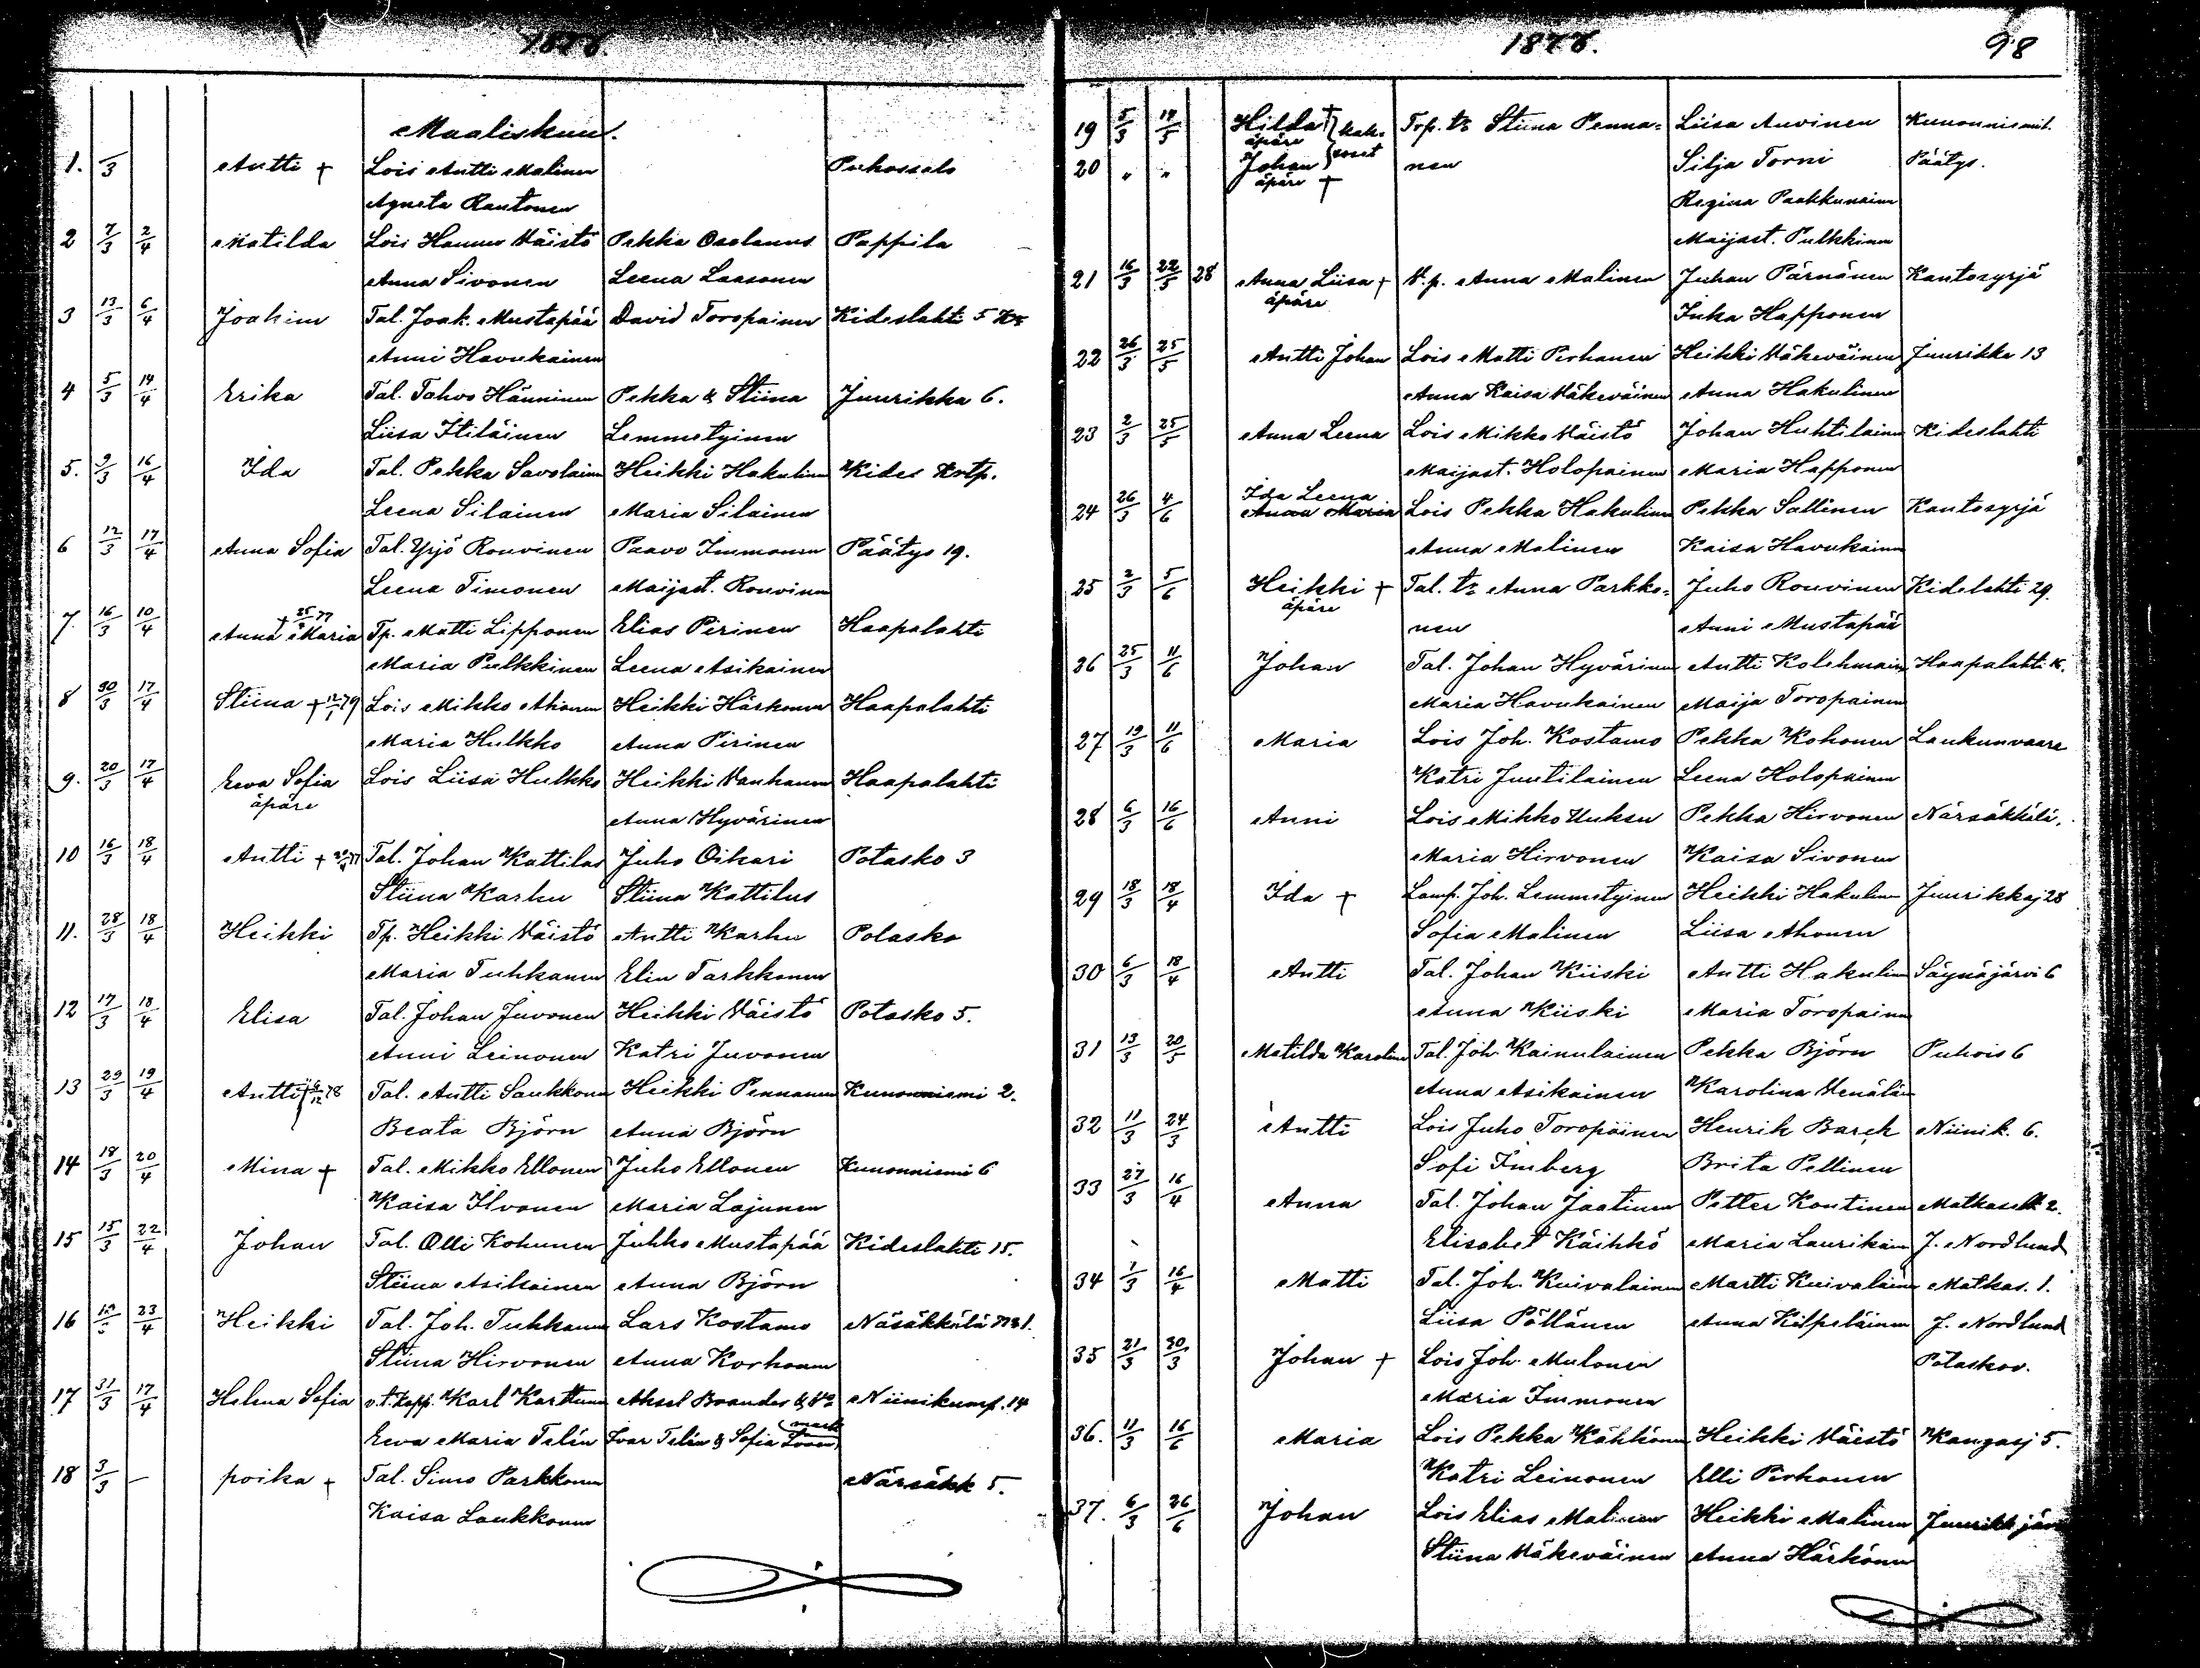 1878.
Maaliskuu.
1. /3 Antti + Lois Antti Malinen Puhossalo
Agneta Rautonen
2 7/3 2/4 Matilda Lois Hannes Väistö Pekka Oselanus Pappila
Anna Sivonen Leena Laasonen
3 13/3 6/4 Joakim Tal. Joak. Mustapää David Toropainen Kideslahti 5
Anni Havukainen
4 5/3 14/4 Erika Tal. Tahvo Hänninen Pekka & Stiina Juurikka 6.
Liisa Itiläinen Lemmetyinen
5. 9/3 16/4 Ida Tal. Pekka Savolainen Heikki Hakulinen Kides
Leena Silainen Maria Silainen
6 12/3 17/4 Anna Sofia Tal. Yrjö Rouvinen Paavo Immonen Päätys 19.
Leena Timonen Maijast. Rouvinen
7. 16/3 10/4 Anna Maria Tp. Matti Lipponen Elias Pirinen Haapalahti
Maria Pulkkinen Leena Asikainen
8 30/3 17/4 Stiina + Lois Mikko Ahonen Heikki Härkönen Haapalahti
Maria Hulkko Anna Pirinen
9. 20/3 17/4 Eeva Sofia Lois Liisa Hulkko Heikki Vanhanen Haapalahti
äpäre Anna Hyvärinen
10 16/3 18/4 Antti + Tal. Johan Kattilus Juho Oikari Potasko 3
Stiina Karhu Stiina Kattilus
11. 28/3 18/4 Heikki Tp. Heikki Väistö Antti Karhu Potasko
Maria Tuhkanen Elin Tarkkonen
12 17/3 18/4 Elisa Tal. Johan Juvonen Heikki Väistö Potasko 5.
Anni Leinonen Katri Juvonen
13 29/3 19/4 Antti Tal. Antti Saukkonen Heikki Pennanen Kunonniemi 2.
Beata Björn Anna Björn
14 18/3 20/4 Mina + Tal. Mikko Ellonen Juho Ellonen Kunonniemi 6
Kaisa Ilvonen Maria Lajunen
15 15/3 22/4 Johan Tal. Olli Kohonen Juhko Mustapää Kideslahti 15.
Stiina Asikainen Anna Björn
16 23/4 Heikki Tal. Joh. Tuhkanen Lars Kostamo Näsäkkälä
Stiina Hirvonen Anna Korhonen
17 31/3 17/4 Helena Sofia v.t. kapp. Karl Karttunen Aksel Brander & Niinikump. 14
Eeva Maria Telén Ivar Telén & Sofia
18 3/3 — poika + Tal. Simo Parkkonen Närsäkk 5.
Kaisa Laukkonen
1878. 98
19 5/3 Hilda + äpäre kak- Trp. tr Stiina Penna- Liisa Auvinen Kunonniemi.
20 " " Johan äpäre + soset nen Silja Torni Päätys.
Regina Paakkunainen
Maijast. Pulkkinen
21 16/3 22/5 28 Anna Liisa + V.p. Anna Malinen Juhan Pärnänen Kantosyrjä
äpäre Inka Happonen
22 26/3 25/5 Antti Johan Lois Matti Pirhonen Heikki Väkeväinen Juurikka 13
Anna Kaisa Väkeväinen Anna Hakulinen
23 2/3 25/5 Anna Leena Lois Mikko Väistö Johan Huhtilainen Kideslahti
Maijast. Holopainen Maria Happonen
Ida Leena
24 26/3 4/6 Anna Maria Lois Pekka Hakulinen Pekka Sallinen Kantosyrjä
Anna Malinen Kaisa Havukainen
25 2/3 5/6 Heikki + Tal. tr Anna Parkko- Juho Rouvinen Kidelahti 29.
äpäre nen Anni Mustapää
26 25/3 11/6 Johan Tal. Johan Hyvärinen Antti Kolehmainen Haapalahti
Maria Havukainen Maija Toropainen
27 19/3 11/6 Maria Lois Joh. Kostamo Pekka Kohonen Laukunvaara
Katri Juutilainen Leena Holopainen
28 6/3 16/6 Anni Lois Mikko Uuksu Pekka Hirvonen Närsäkkälä.
Maria Hirvonen Kaisa Sivonen
29 18/3 18/4 Ida + Lamp. Joh. Lemmetyinen Heikki Hakulinen Juurikkaj 28
Sofia Malinen Liisa Ahonen
30 6/3 18/4 Antti Tal. Johan Kiiski Antti Hakulinen Säynäjärvi 6
Anna Kiiski Maria Toropainen
31 13/3 20/5 Matilda Karolina Tal. Joh. Kainulainen Pekka Björn Puhois 6
Anna Asikainen Karolina Venäläinen
32 11/3 24/3 Antti Lois Juho Toropainen Henrik Barck Niinik. 6.
Sofi Imberg Brita Pellinen
33 27/3 16/4 Anna Tal. Johan Jaatinen Petter Kontinen Matkaselk 2.
Elisabet Käihkö Maria Laurikainen J. Nordlund
34 1/3 16/4 Matti Tal. Joh. Kuivalainen Martti Kuivalainen Matkas. 1.
Liisa Pöllänen Anna Kilpeläinen J. Nordlund
35 21/3 30/3 Johan + Lois Joh. Mulonen Potaskov.
Maria Immonen
36. 11/3 16/6 Maria Lois Pekka Kähkönen Heikki Väistö Kangasj 5.
Katri Leinonen Elli Pirhonen
37. 6/3 26/6 Johan Lois Elias Malinen Heikki Malinen Juurikkjärvi
Stiina Väkeväinen Anna Härkönen